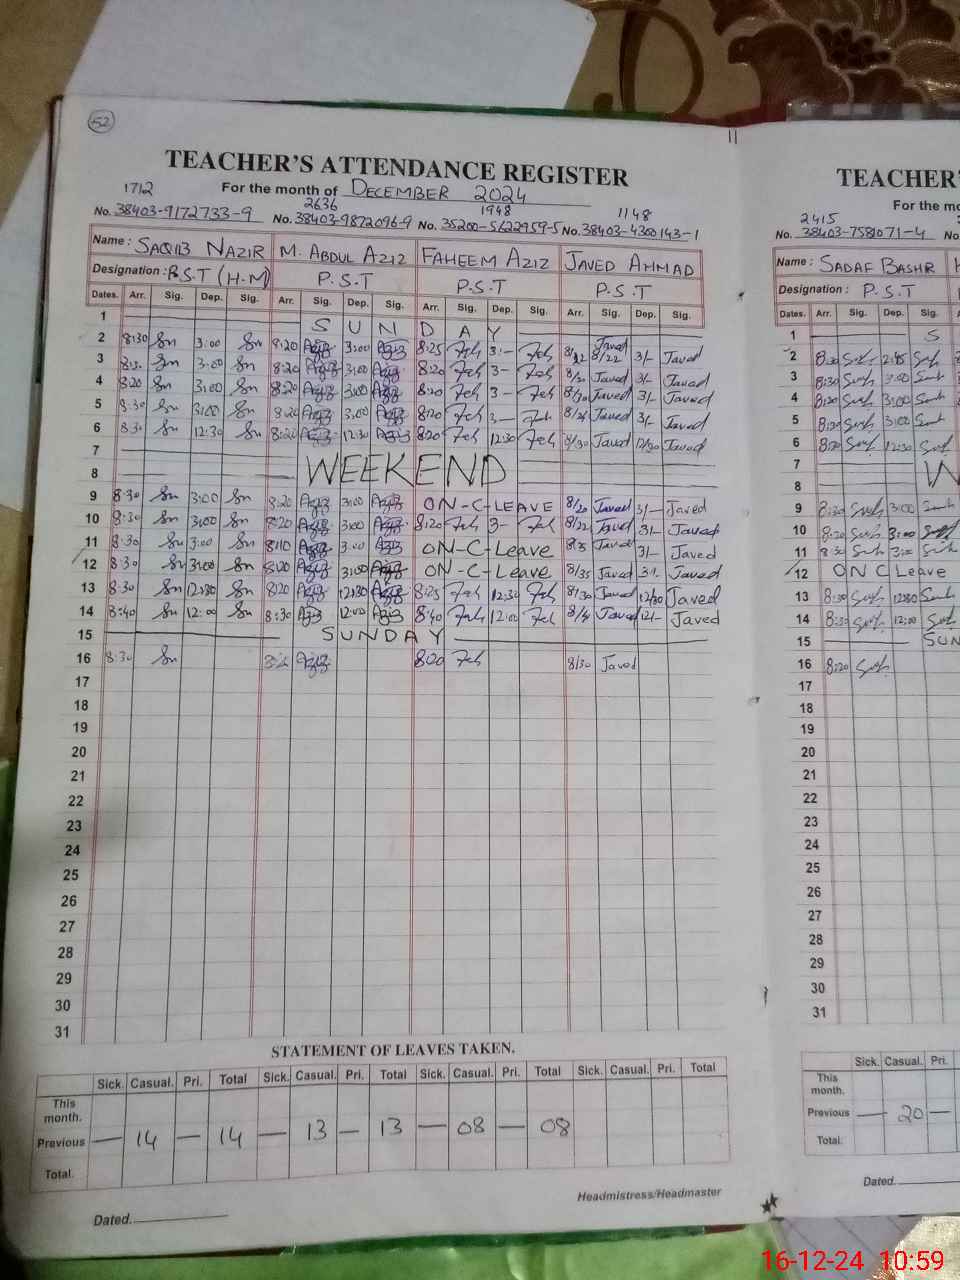 52
TEACHER'S ATTENDANCE REGISTER
For the month of DECEMBER 2024
1712 2636 1948 1148
No. 38403-9172733-9 No. 38403-9872096-9 No. 35200-5622959-5 No. 38403-4300143-1
Name : SAQIB NAZIR M. ABDUL AZIZ FAHEEM AZIZ JAVED AHMAD
Designation : P.S.T (H.M) P.S.T P.S.T P.S.T
Dates. Arr. Sig. Dep. Sig. Arr. Sig. Dep. Sig. Arr. Sig. Dep. Sig. Arr. Sig. Dep. Sig.
1 SUNDAY
2 8:30 Sn 3:00 Sn 8:20 Aziz 3:00 Aziz 8:25 Feh 3:- Feh 8/22 Javed 3/- Javed
3 Sn 3:00 Sn 8:20 Aziz 3:00 Aziz 8:20 Feh 3- Feh 8/20 Javed 3/- Javed
4 8:20 Sn 3:00 Sn 8:20 Aziz 3:00 Aziz 8:20 Feh 3- Feh Javed 3/- Javed
5 8:30 Sn 3:00 Sn 8:20 Aziz 3:00 Aziz 8:20 Feh 3- Feh Javed 3/- Javed
6 8:30 Sn 12:30 Sn 8:20 Aziz 12:30 Aziz 8:20 Feh 12:30 Feh 8/30 Javed 12/30 Javed
7
8 WEEKEND
9 8:30 Sn 3:00 Sn 8:20 Aziz 3:00 Aziz ON-C-LEAVE 8/20 Javed 3/- Javed
10 8:30 Sn 3:00 Sn 8:20 Aziz 3:00 Aziz 8:20 Feh 3- Feh 8/22 Javed 3/- Javed
11 8:30 Sn 3:00 Sn 8:10 Aziz 3:00 Aziz ON-C-Leave Javed 3/- Javed
12 8:30 Sn 3:00 Sn 8:20 Aziz 3:00 Aziz ON-C-Leave 8/35 Javed 3/- Javed
13 8:30 Sn 12:30 Sn 8:20 Aziz 12:30 Aziz 8:25 Feh 12:30 Feh 8/30 Javed 12/30 Javed
14 8:40 Sn 12:00 Sn 8:30 Aziz 12:00 Aziz 8:40 Feh 12:00 Feh Javed 12/- Javed
15 SUNDAY
16 8:30 Sn Aziz 8:20 Feh 8/30 Javed
17
18
19
20
21
22
23
24
25
26
27
28
29
30
31
STATEMENT OF LEAVES TAKEN.
Sick. Casual. Pri. Total Sick. Casual. Pri. Total Sick. Casual. Pri. Total Sick. Casual. Pri. Total
This month.
Previous — 14 — 14 — 13 — 13 — 08 — 08
Total.
Headmistress/Headmaster
Dated.
TEACHER'
For the mo
2415
No. 38403-7581071-4 No
Name : SADAF BASHR
Designation : P.S.T
Dates. Arr. Sig. Dep. Sig.
1 S
2 8:30 2:45
3 8:30 3:00
4 8:20 3:00
5 8:20 3:00
6 8:20 12:30
7
8 W
9 8:30 3:00
10 8:20 3:00
11 8:30 3:00
12 ON C Leave
13 8:30 12:30
14 8:30 12:00
15 SUN
16 8:20
17
18
19
20
21
22
23
24
25
26
27
28
29
30
31
Sick. Casual. Pri.
This month.
Previous — 20 —
Total.
Dated.
16-12-24 10:59